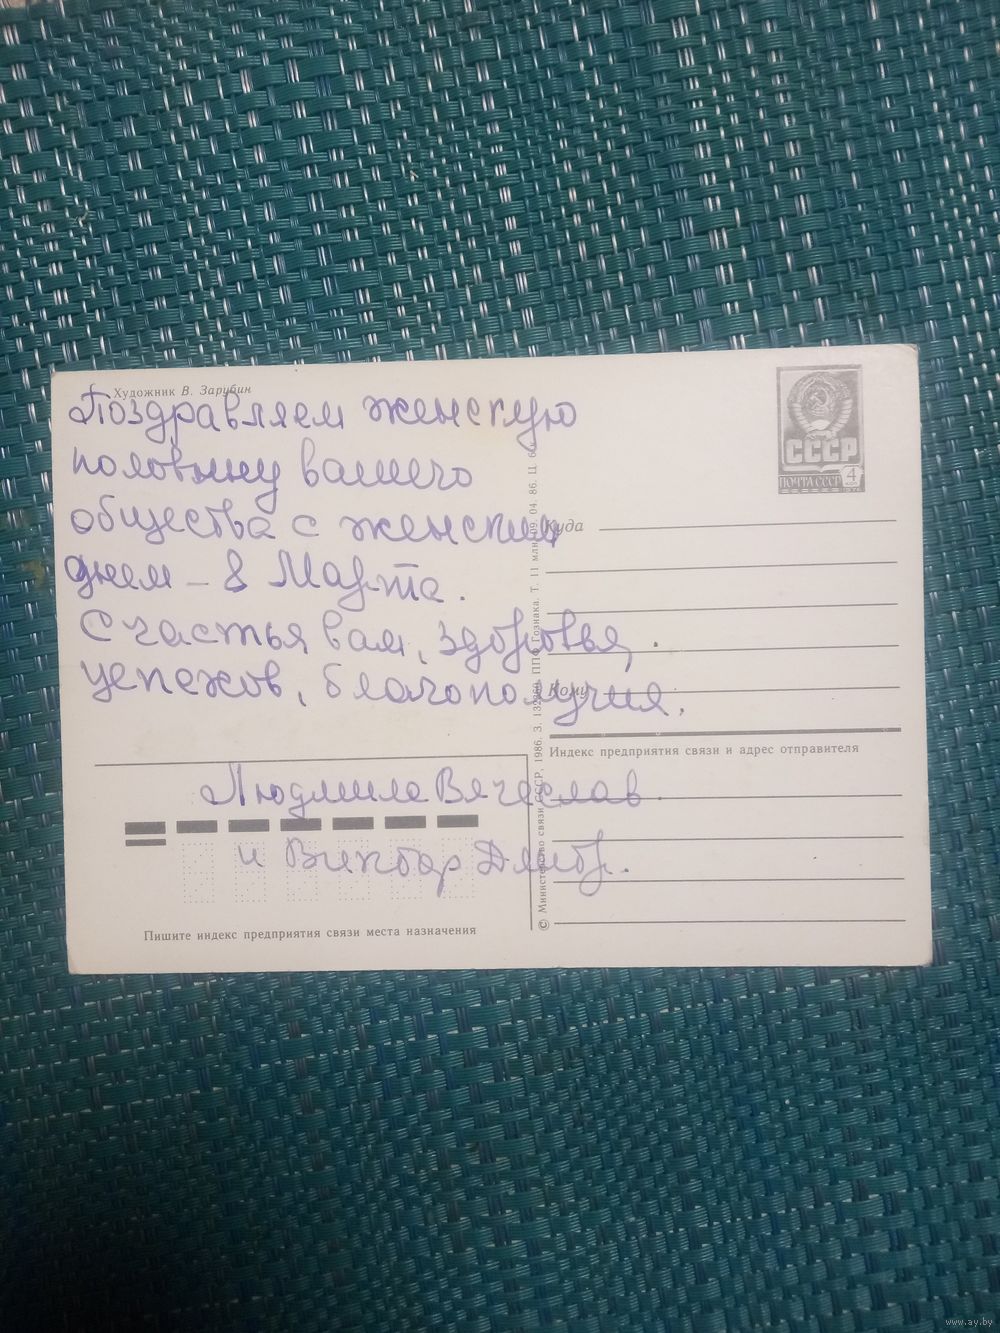 Художник В. Зарубин
Поздравляем женскую
половину вашего
общества с женским
днем – 8 Марта.
Счастья вам, здоровья,
успехов, благополучия.
Людмила Вячеслав
и Виктор
СССР
ПОЧТА СССР 4
Куда
Кому
Индекс предприятия связи и адрес отправителя
Пишите индекс предприятия связи места назначения
© Министерство связи СССР, 1986. З. 132360. ППФ Гознака. Т. 11 млн. 09. 04. 86. Ц. 6
www.ay.by